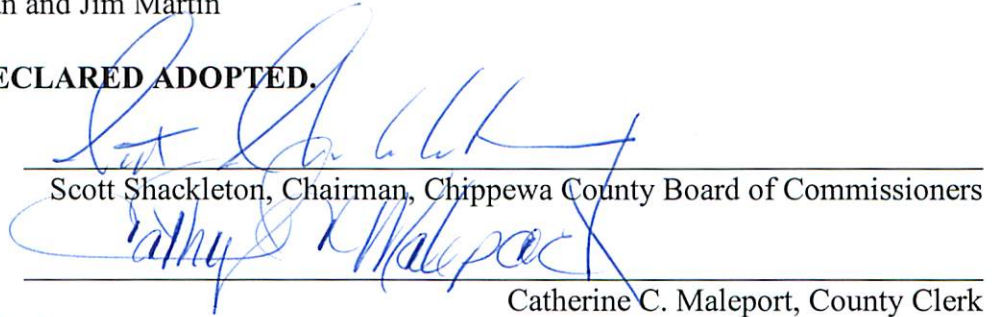 n and Jim Martin
ECLARED ADOPTED.
Scott Shackleton, Chairman, Chippewa County Board of Commissioners
Cathy Maleport
Catherine C. Maleport, County Clerk